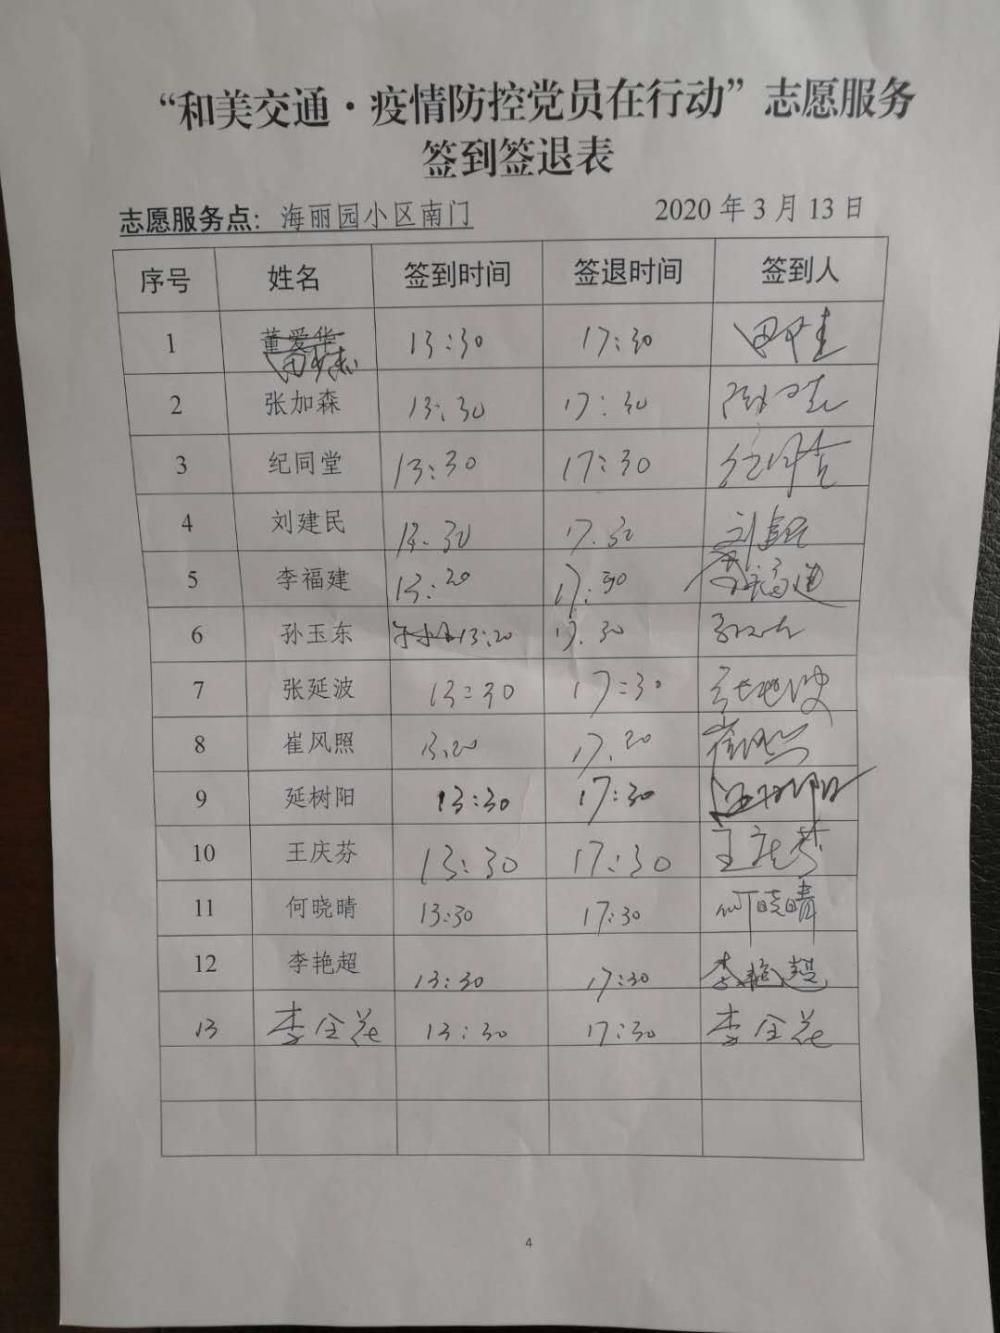 “和美交通·疫情防控党员在行动”志愿服务
签到签退表
志愿服务点：海丽园小区南门 2020 年 3 月 13 日
序号 姓名 签到时间 签退时间 签到人
1 董爱华 13:30 17:30
2 张加森 13:30 17:30
3 纪同堂 13:30 17:30 纪同堂
4 刘建民 13.30 17.30 刘建民
5 李福建 13:20 17:30 李福建
6 孙玉东 13:20 17.30 孙玉东
7 张延波 13:30 17:30 张延波
8 崔风照 13.20 17.20 崔风照
9 延树阳 13:30 17:30 延树阳
10 王庆芬 13:30 17:30 王庆芬
11 何晓晴 13:30 17:30 何晓晴
12 李艳超 13:30 17:30 李艳超
13 李全花 13:30 17:30 李全花
4